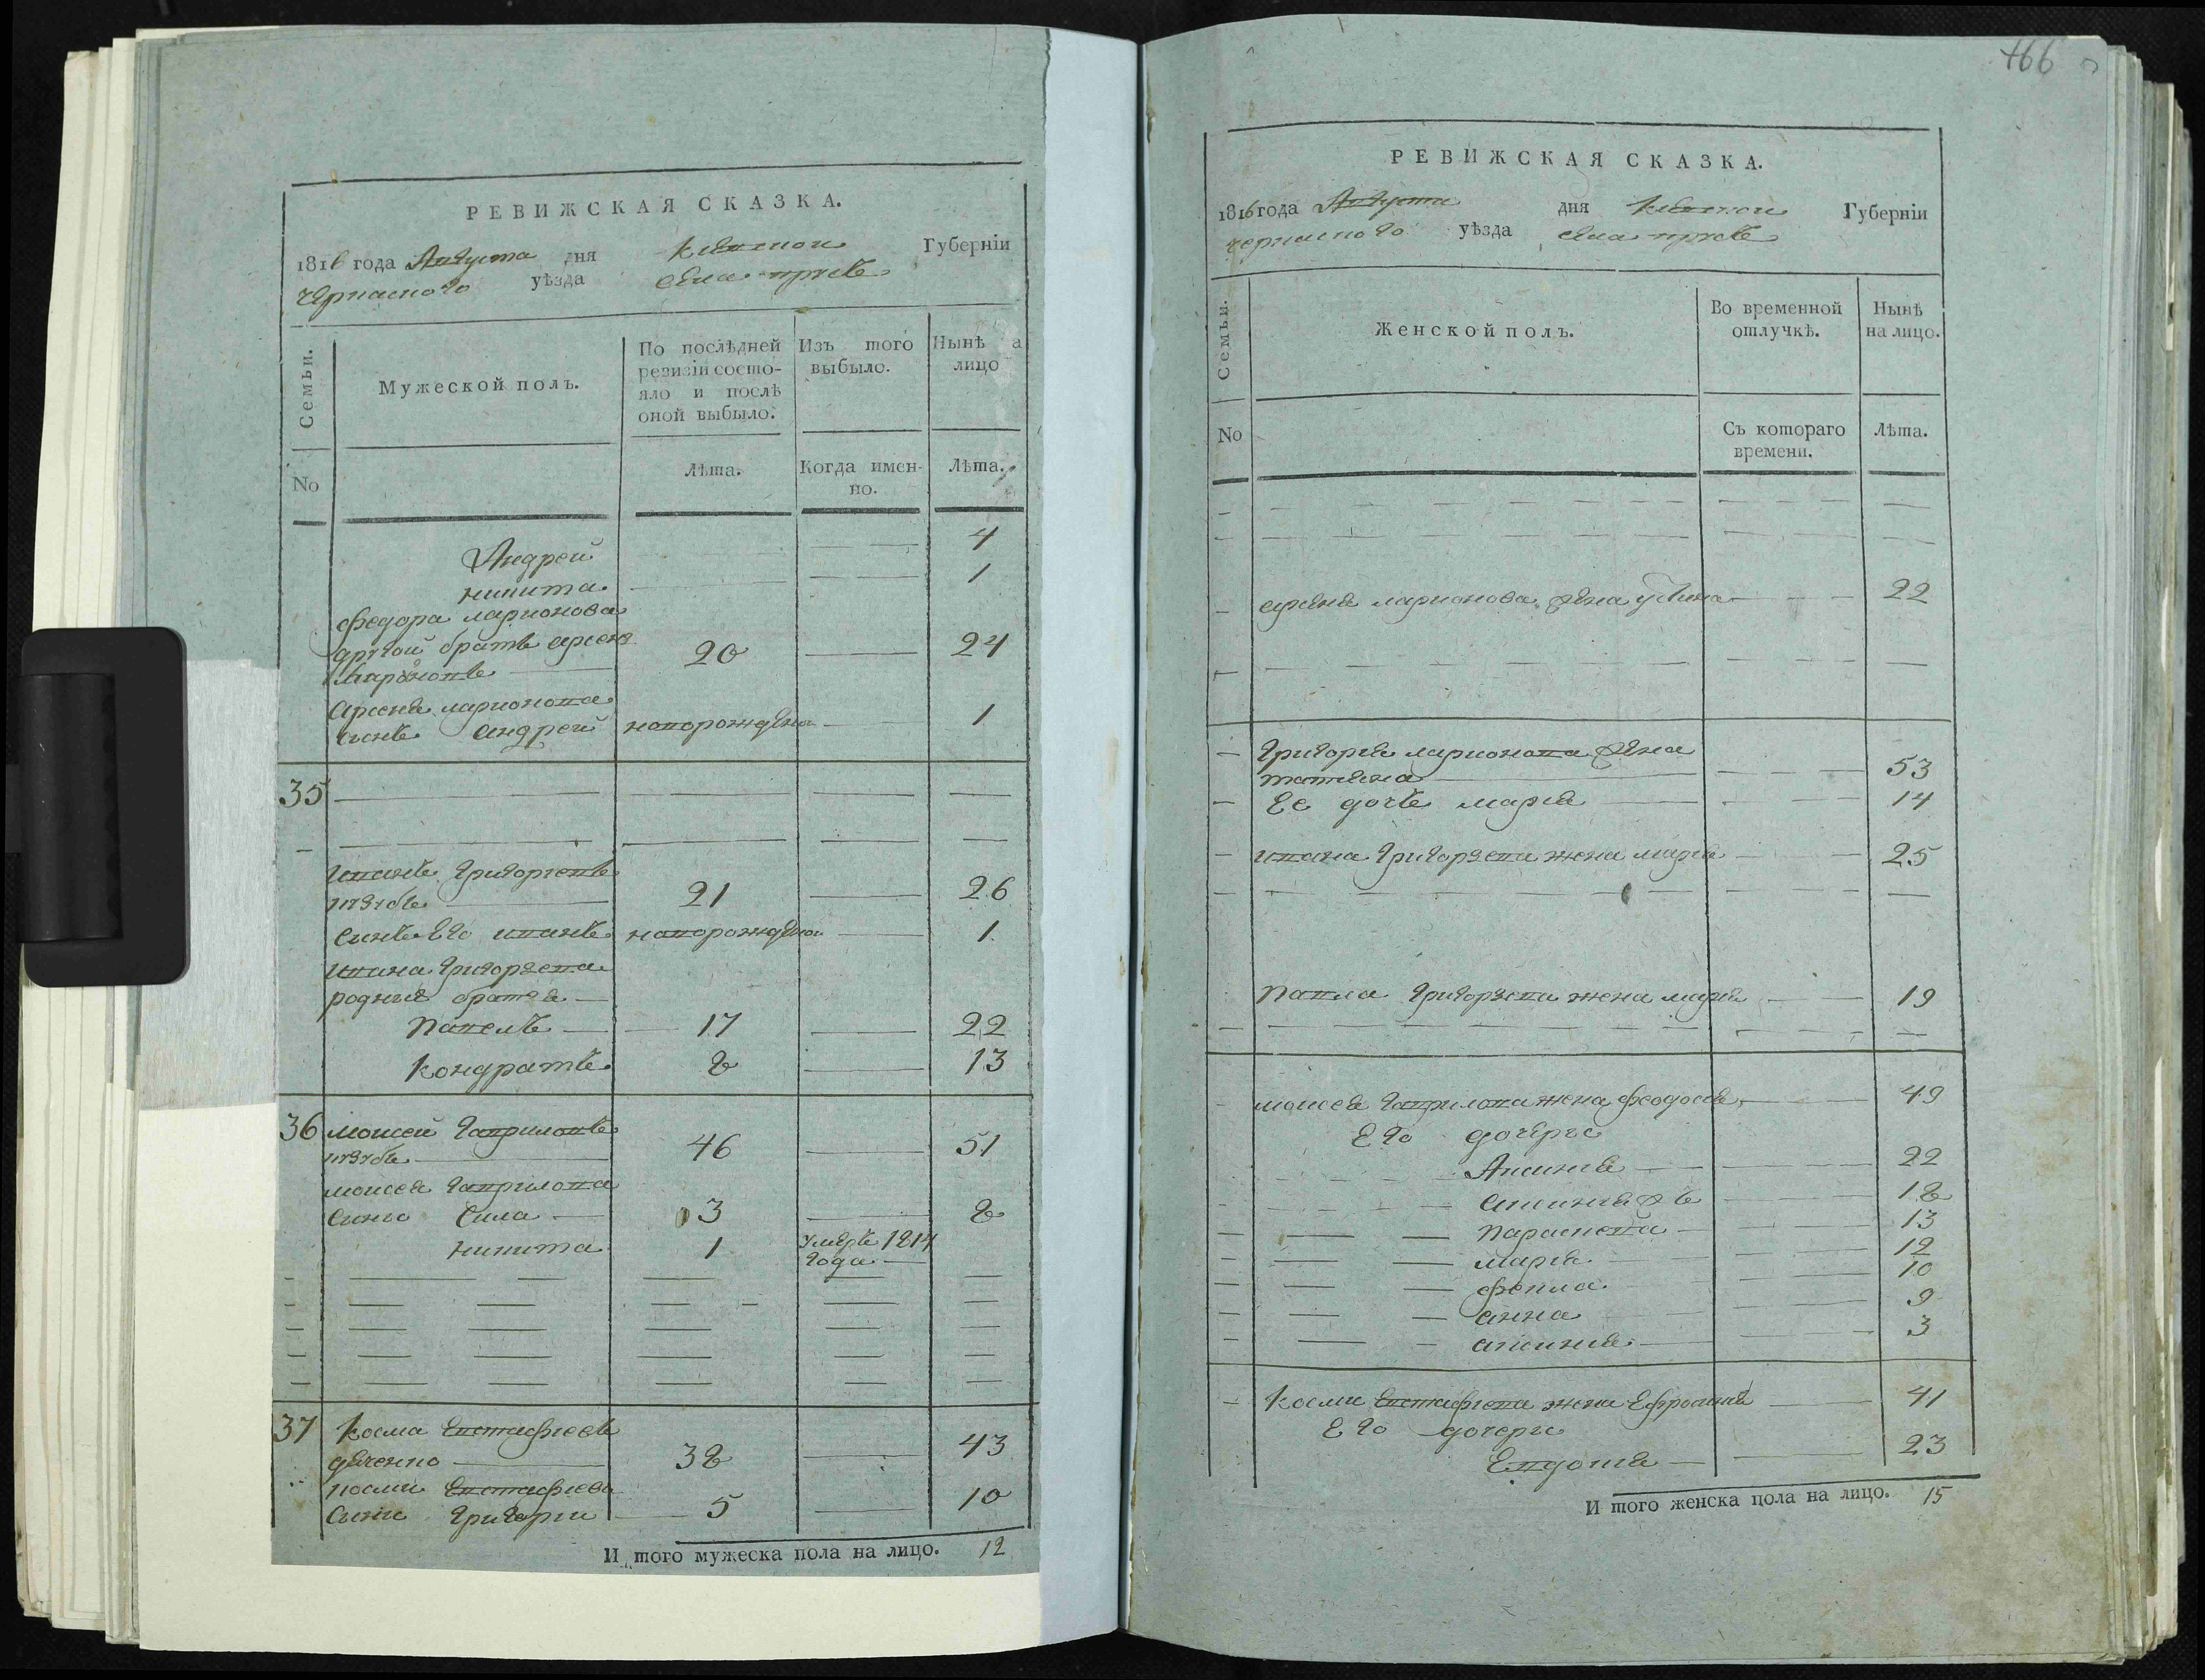 РЕВИЖСКАЯ СКАЗКА.
1816 года Августа дня Киевской Губерніи
черкаского уѣзда села
Семьи.
Мужеской полъ.
По послѣдней
ревизіи состо-
яло и послѣ
оной выбыло.
Изъ того
выбыло.
Нынѣ а
лицо
No
Лѣта.
Когда имен-
но.
Лѣта.
Андрей 4
никита 1
федора ларионова
другой братъ арсен
ларионовъ 20 24
Арсения ларионова
синъ андрей новорожденъ 1
35
иванъ григориевъ
21 26
Синъ его иванъ новорожден 1
ивана григориева
родния братья
Павелъ 17 22
Кондратъ 8 13
36 моисей гавриловъ
46 51
моисея гаврилова
сини Сила 3 8
никита 1 умеръ 1814
года
37 Косма Евстафиевъ
дяченко 38 43
косми Евстафиева
Сини григорий 5 10
И того мужеска пола на лицо. 12
466
РЕВИЖСКАЯ СКАЗКА.
1816 года Августа дня Киевской Губерніи
черкаского уѣзда села
Семьи.
Женской полъ.
Во временной
отлучкѣ.
Нынѣ
на лицо.
No
Съ котораго
времени.
Лѣта.
арсения ларионова жена 22
Григория ларионова жена
татияна 53
Ее дочь мария 14
ивана григориева жена мария 25
Павла григориева жена мария 19
моисея гаврилова жена феодосия 49
Его дочери
Аксиния 22
18
Параскева 13
мария 12
фекла 10
анна 9
аксиния 3
Косми Евстафиева жена Ефросиния 41
Его дочери
Евдокия 23
И того женска пола на лицо. 15